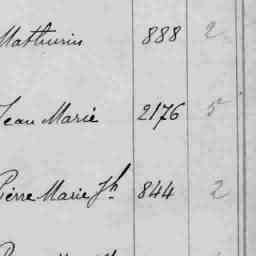 Mathurin 888 2
Jean Marie 2176 5
Pierre Marie Jh 844 2